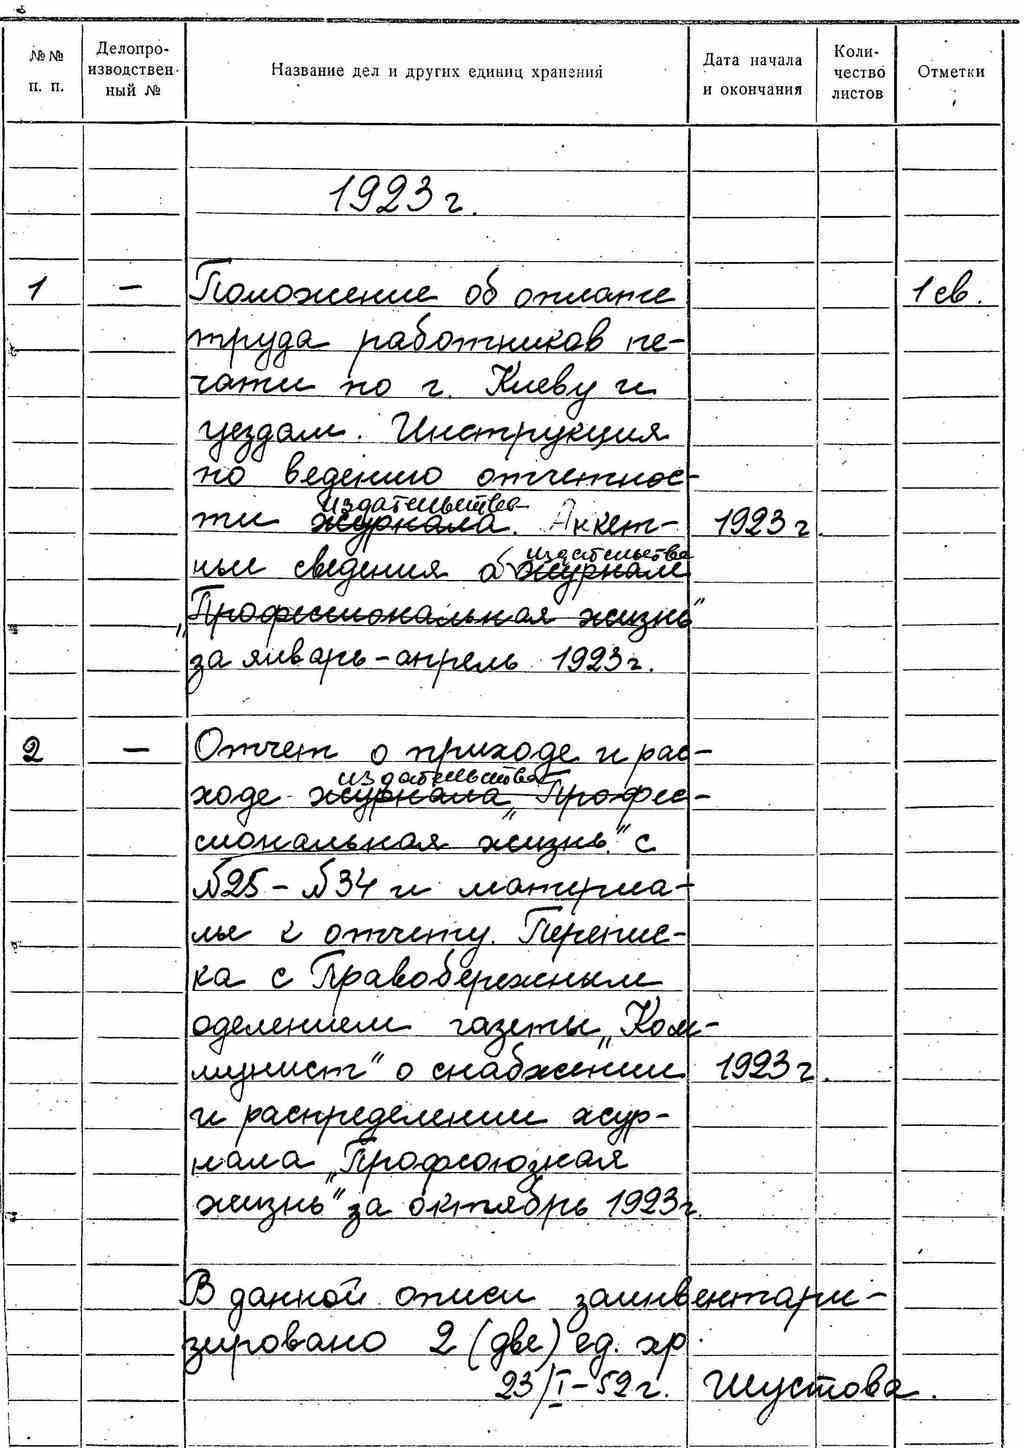 №№ п. п. Делопроизводствен- ный № Название дел и других единиц хранения Дата начала и окончания Коли- чество листов Отметки
1923 г.
1 – Положение об оплате 1 св.
труда работников пе-
чати по г. Киеву и
уездам. Инструкция
по ведению отчетнос-
издательства
ти журнала. Анкет- 1923 г
издательства
ные сведения о журнале
„Профессиональная жизнь"
за январь-апрель 1923 г.
2 – Отчет о приходе и рас-
издательства
ходе журнала „Профес-
сиональная жизнь" с
№25-№34 и материа-
лы к отчету. Перепис-
ка с Правобережным
оделением газеты „Ком-
мунист" о снабжении 1923 г.
и распределении жур-
нала „Профсоюзная
жизнь" за октябрь 1923 г.
В данной описи заинвентари-
зировано 2 (две) ед. хр.
23/I-52 г. Шустова.